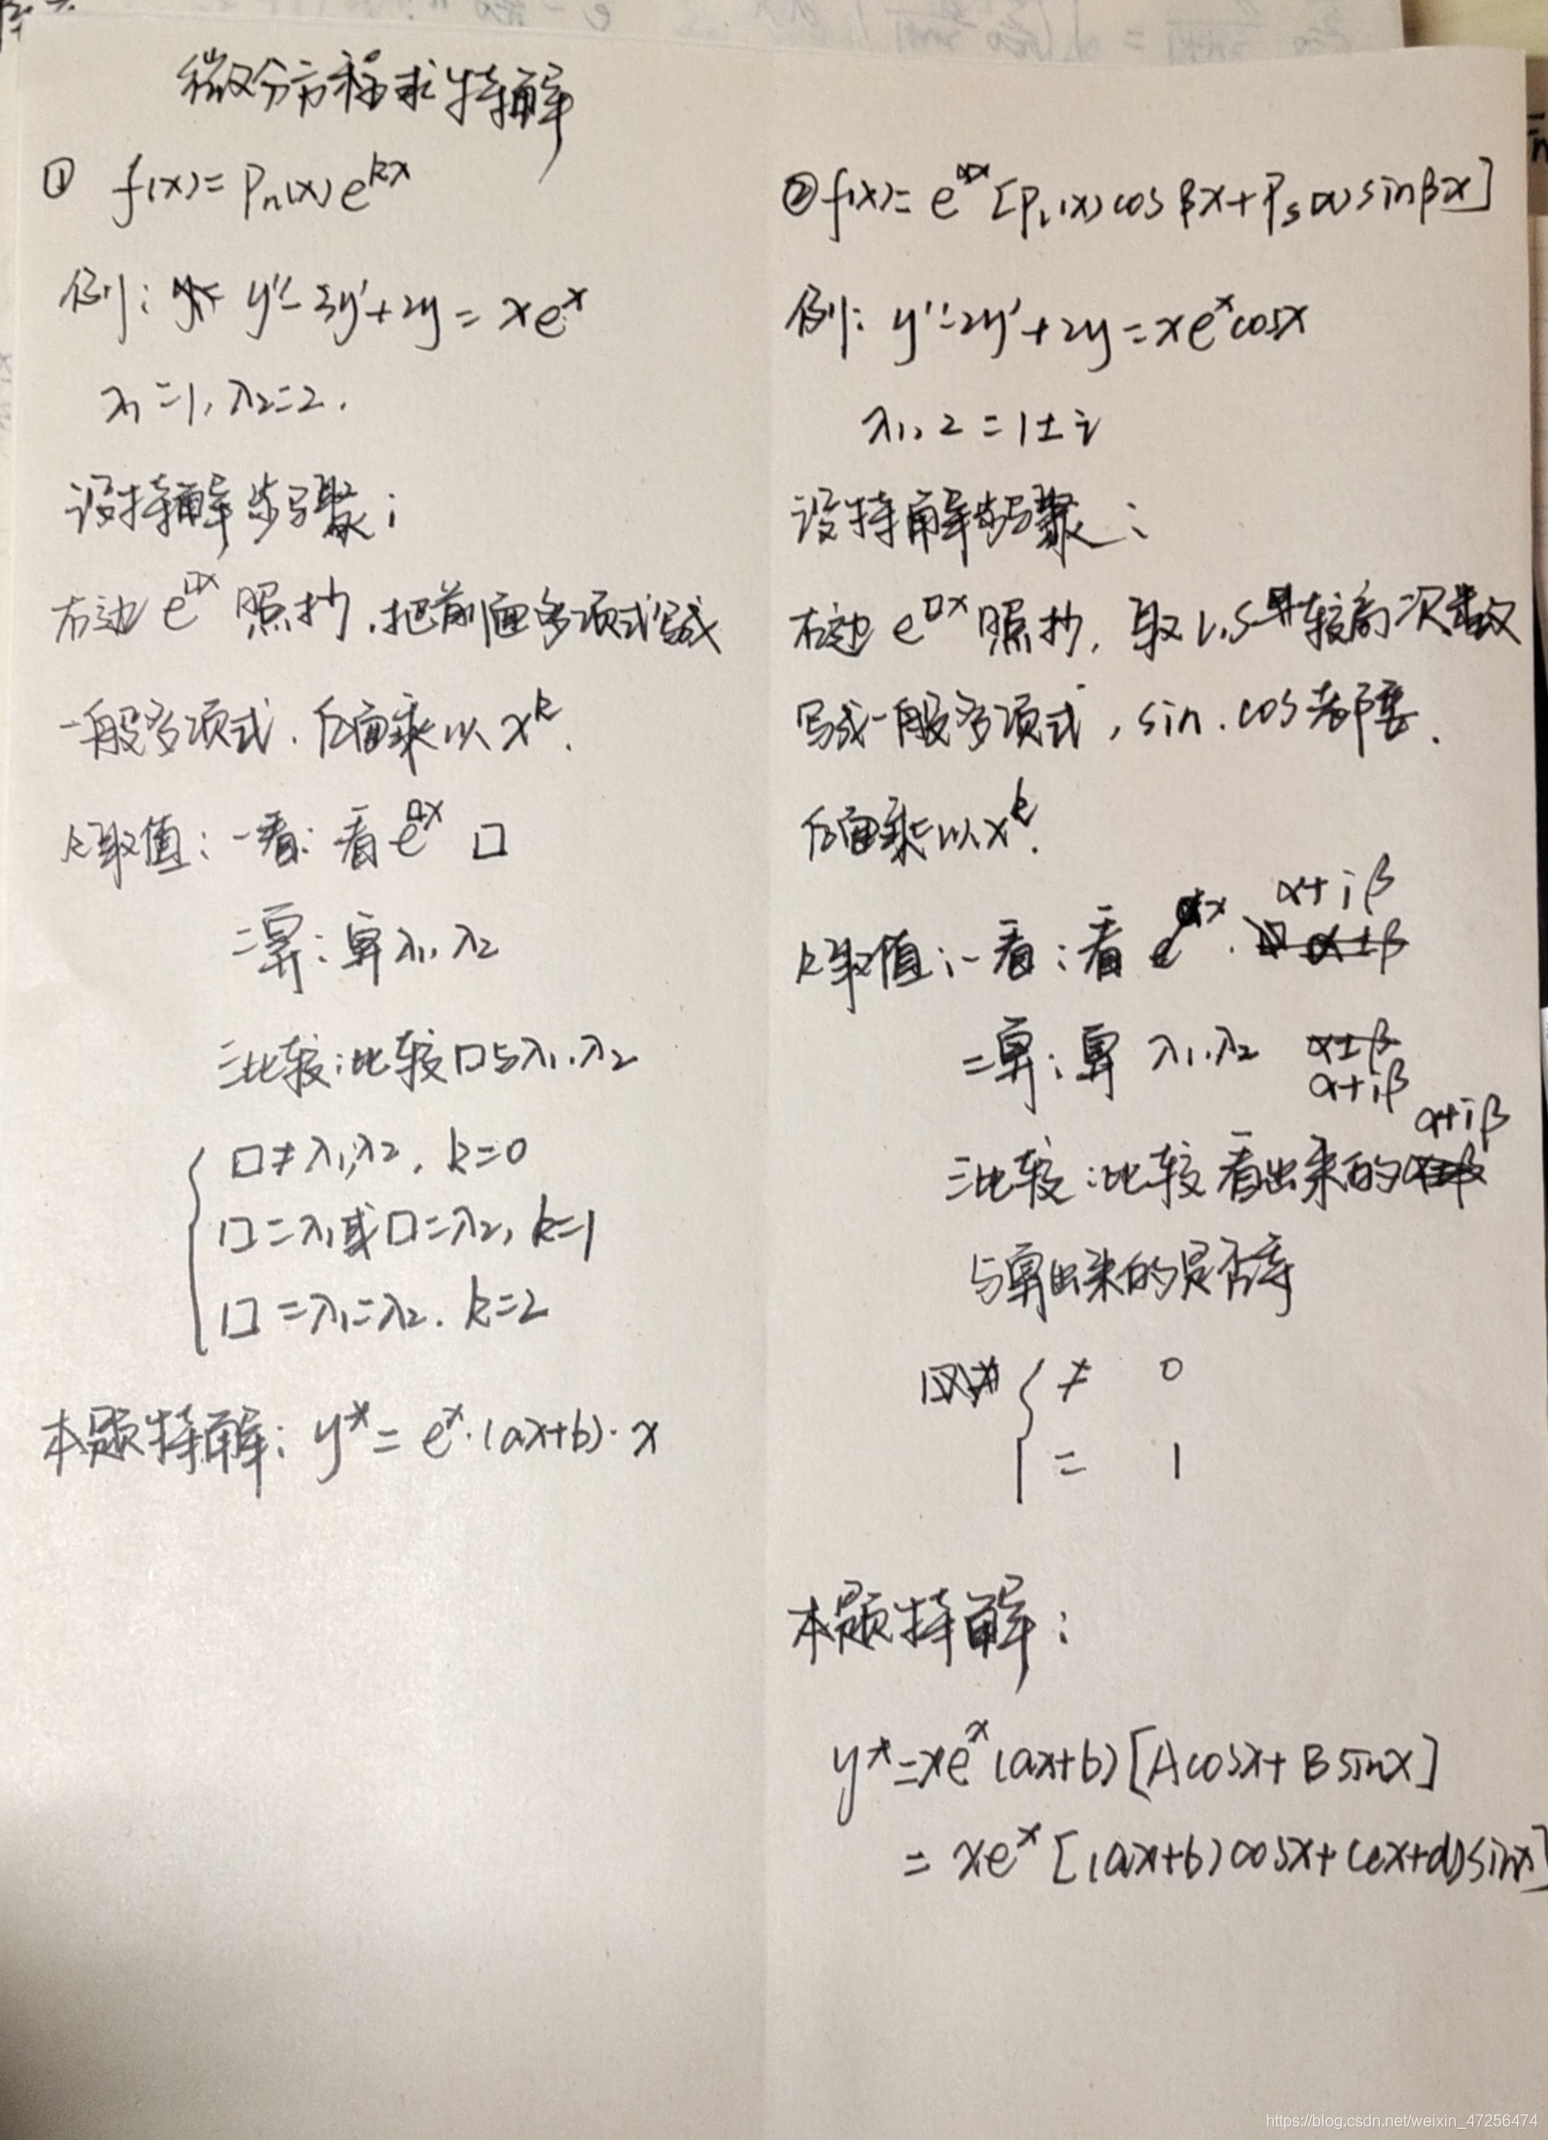 微分方程求特解
① f(x)= Pn(x) e^kx
例: y''-3y'+2y = xe^x
λ1=1, λ2=2.
设特解步骤:
右边 e^□x 照抄, 把前面多项式写成
一般多项式, 后面乘以 x^k.
k取值: 一看: 看 e^□x □
二算: 算 λ1, λ2
三比较: 比较□与λ1, λ2
□≠λ1, λ2, k=0
□=λ1或□=λ2, k=1
□=λ1=λ2, k=2
本题特解: y*= e^x·(ax+b)·x
② f(x)= e^αx [PL(x)cosβx+Ps(x)sinβx]
例: y''-2y'+2y=xe^x cosx
λ1,2 = 1±i
设特解步骤:
右边 e^□x 照抄, 取L,S中较高次数
写成一般多项式, sin, cos都要.
后面乘以x^k.
k取值: 一看: 看 e^αx. α+iβ
二算: 算 λ1, λ2 α+iβ
三比较: 比较看出来的 α+iβ
与算出来的是否等
≠ 0
= 1
本题特解:
y*=xe^x(ax+b)[Acosx+Bsinx]
= xe^x[(ax+b)cosx+(cx+d)sinx]
https://blog.csdn.net/weixin_47256474